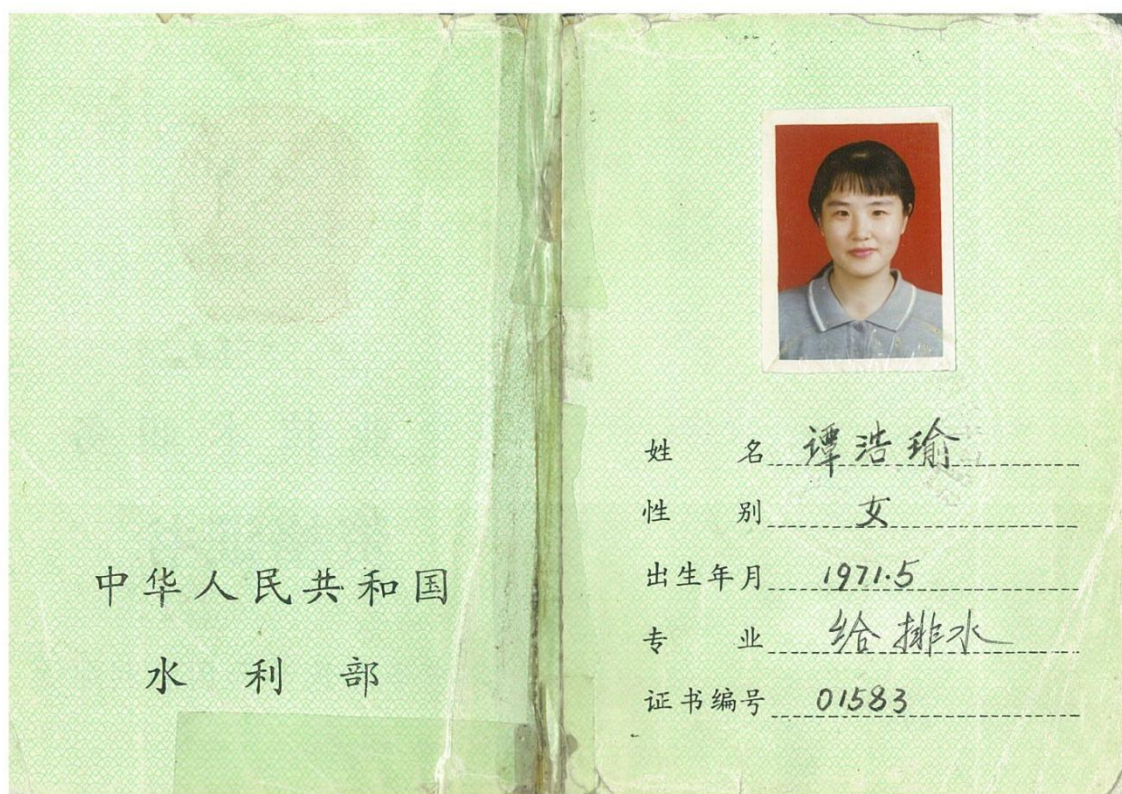 中华人民共和国
水利部
姓名 谭浩瑜
性别 女
出生年月 1971.5
专业 给排水
证书编号 01583